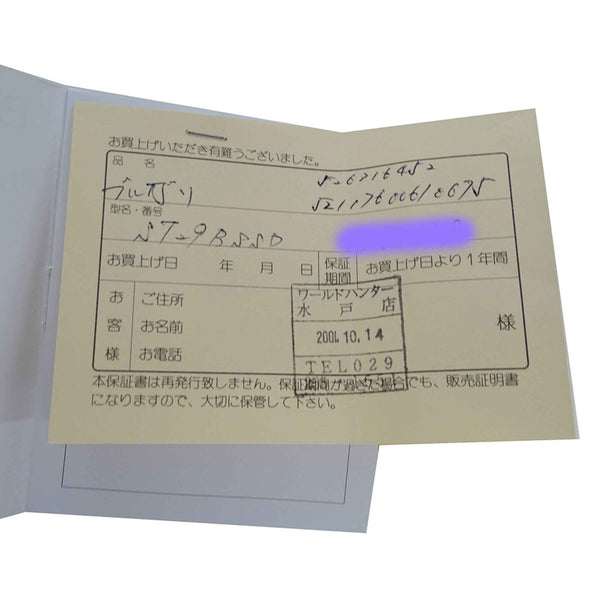 お買上げいただき有難うございました。
品 名
ブルガリ
526216452
52117600610675
型名・番号
ST29BSSD
お買上げ日 年 月 日 保証期間 お買上げ日より1年間
お客様
ご住所
お名前
お電話
様
ワールドハンター
水戸店
2001.10.14
TEL029
本保証書は再発行致しません。保証期間が過ぎた場合でも、販売証明書
になりますので、大切に保管して下さい。